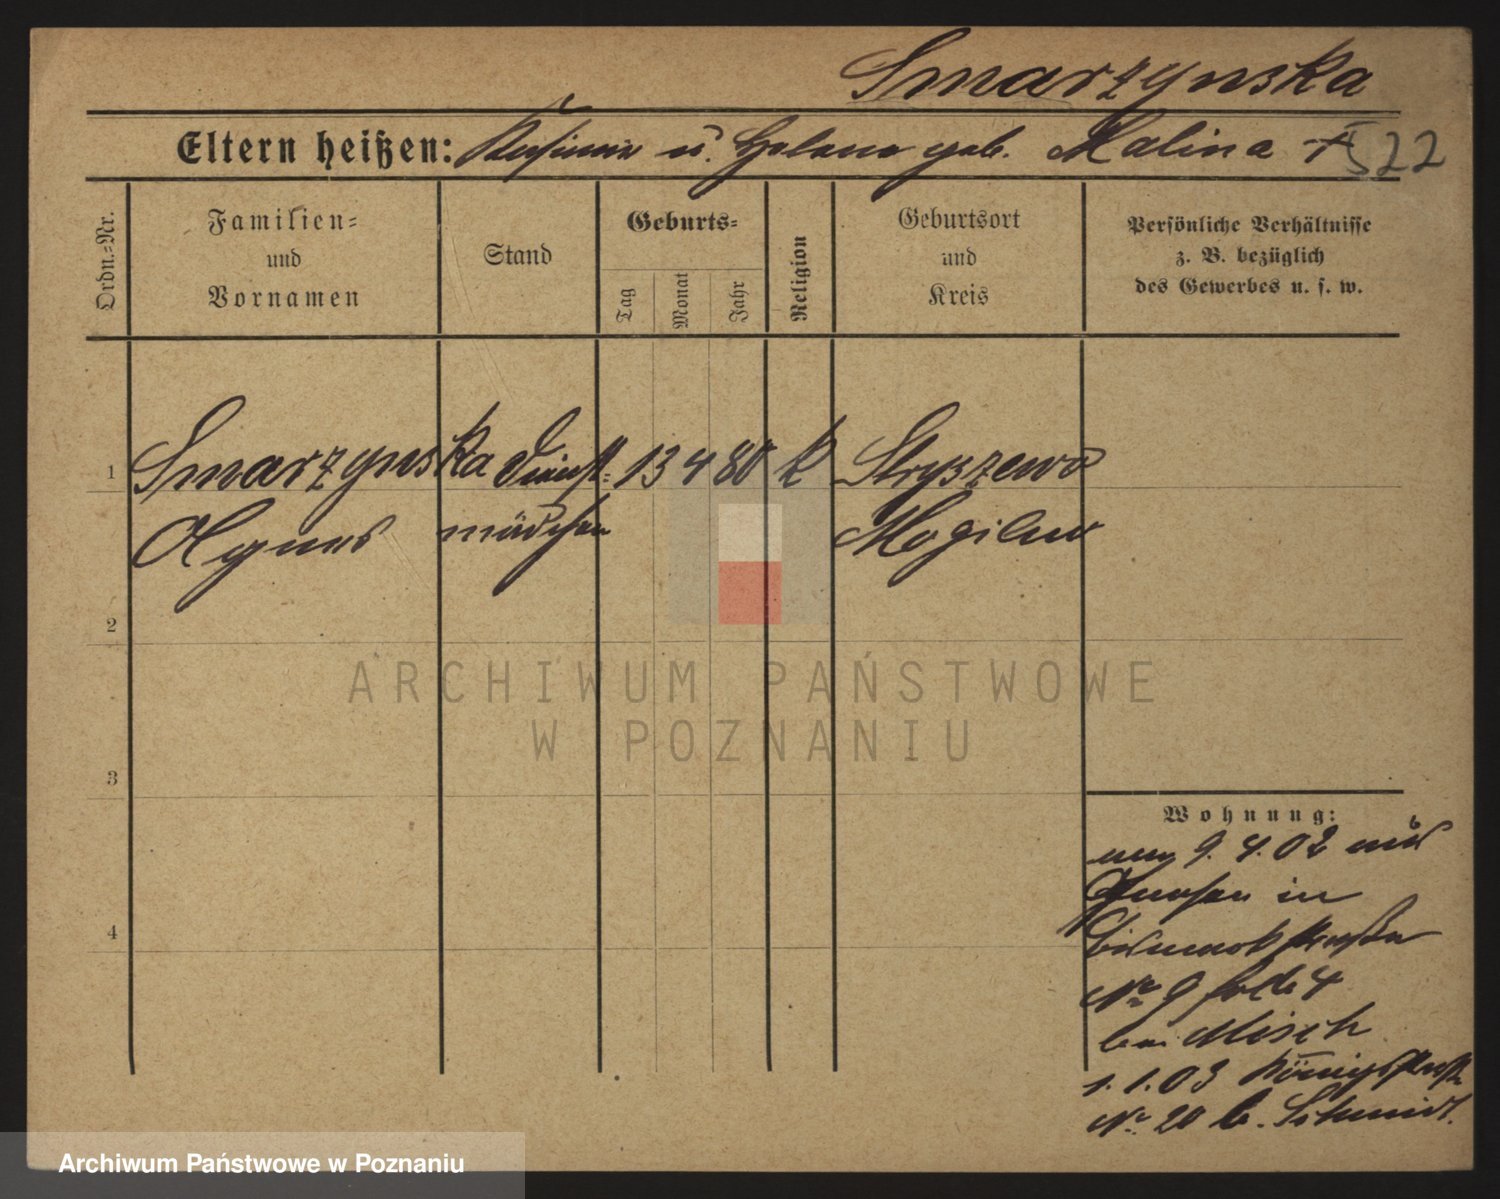 Smarzynska
Eltern heißen: Kasimir u. Helene geb. Malina + 522
Ordn.-Nr.
Familien-
und
Vornamen
Stand
Geburts-
Tag
Monat
Jahr
Religion
Geburtsort
und
Kreis
Persönliche Verhältnisse
z. B. bezüglich
des Gewerbes u. s. w.
1 Smarzynska Dienst- 13 4 80 k Stryszewo
Agnes mädchen Mogilno
2
3
4
ARCHIWUM PAŃSTWOWE
W POZNANIU
Wohnung:
9.4.02 aus
Gnesen in
Bismarckstraße
No 9
bei Misch
1.1.03 Königstraße
No 20 b. Schmidt.
Archiwum Państwowe w Poznaniu